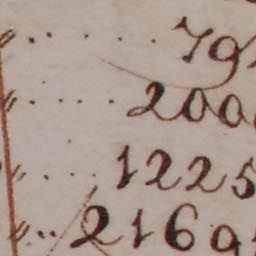 〃 . . . . . . 79
〃 . . . . . 200
〃 . . . . 1225
〃 . . 2169